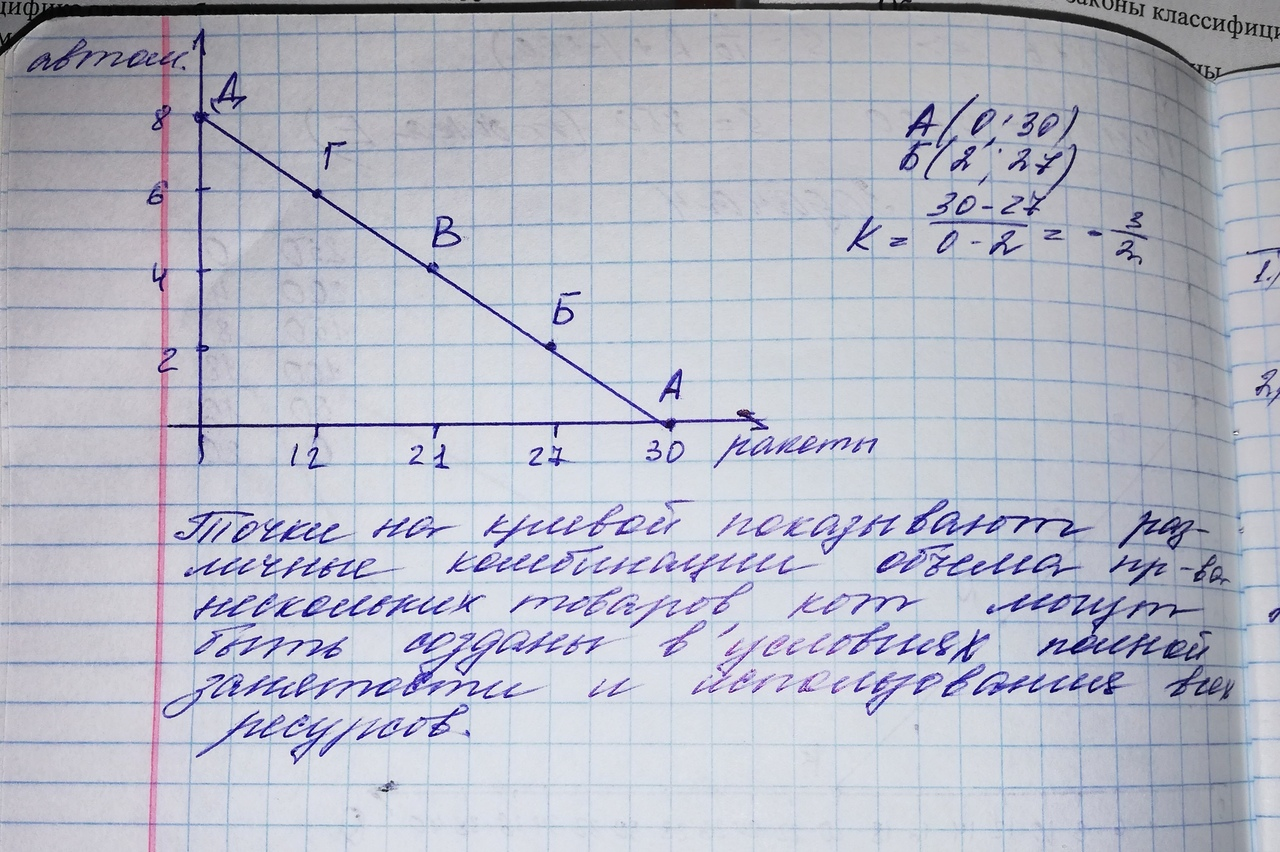 законы классифици
автом.
8
Д
Г
6
В
4
Б
2
А
12
21
27
30
ракеты
А(0; 30)
Б(2; 27)
K = 30-27 / 0-2 = - 3/2
Точки на кривой показывают раз-
личные комбинации объема пр-ва
нескольких товаров, кот могут
быть созданы в условиях полной
занятости и использования всех
ресурсов.
1.
2,